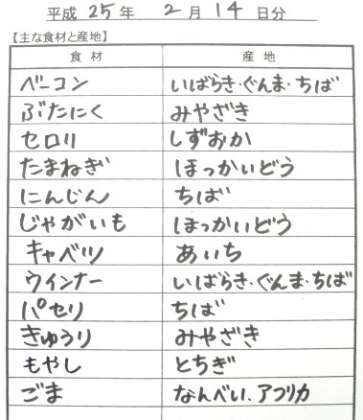 平成 25 年 2 月 14 日分
【主な食材と産地】
食材 産地
ベーコン いばらき・ぐんま・ちば
ぶたにく みやざき
セロリ しずおか
たまねぎ ほっかいどう
にんじん ちば
じゃがいも ほっかいどう
キャベツ あいち
ウインナー いばらき・ぐんま・ちば
パセリ ちば
きゅうり みやざき
もやし とちぎ
ごま なんべい、アフリカ